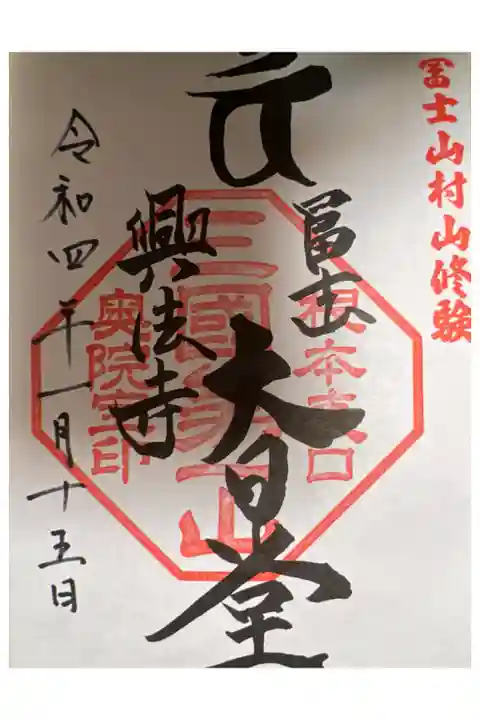 冨士山村山修験
冨士
大日堂
興法寺
令和四年一月十五日
根本表口
三國第一山
奥院室印